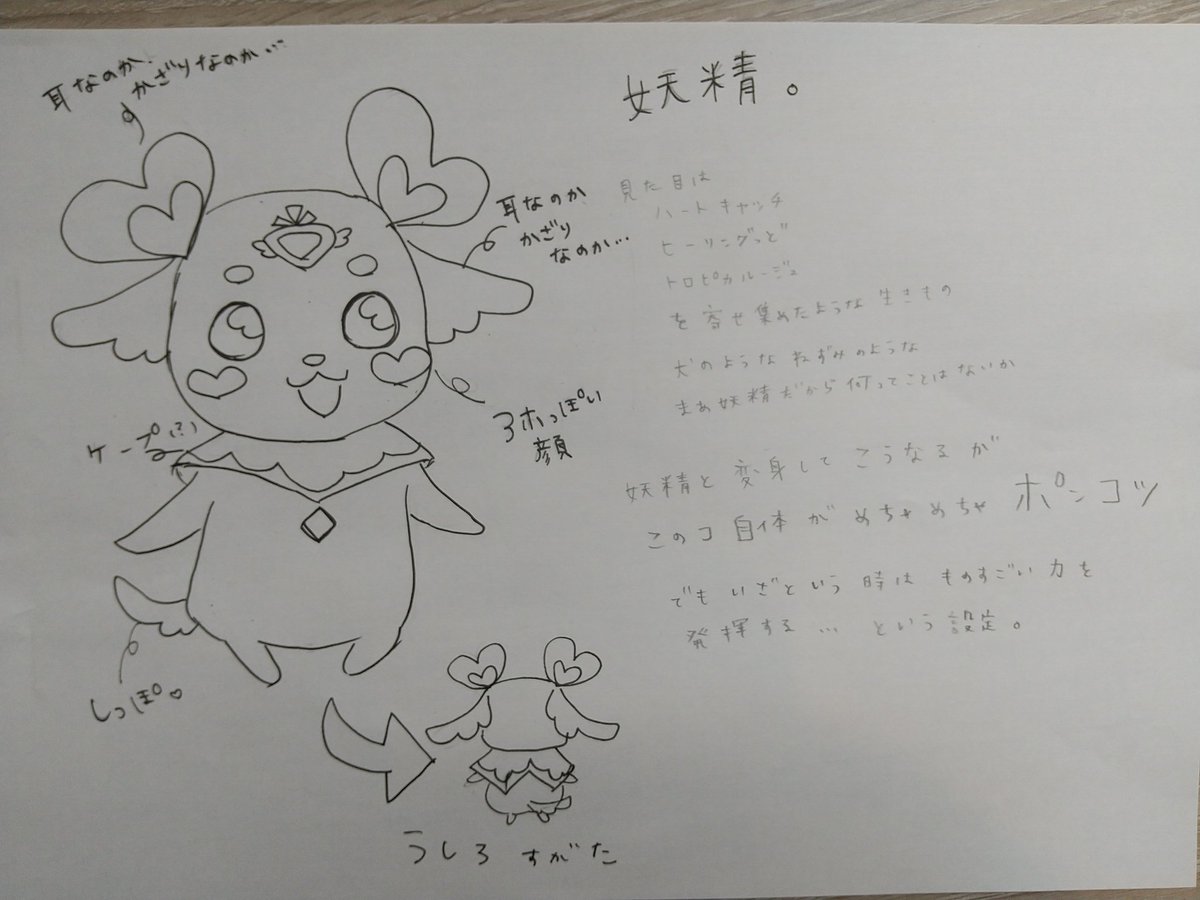 耳なのか、
かざりなのか…
妖精。
耳なのか
かざり
なのか…
見た目は
ハートキャッチ
ヒーリングっど
トロピカルージュ
を寄せ集めたような生きもの
犬のようなねずみのような
まあ妖精だから何ってことはないか
ろホっぽい
顔
ケープ(?)
妖精と変身してこうなるが
このコ自体がめちゃめちゃポンコツ
でもいざという時はものすごい力を
発揮する…という設定。
しっぽ♡
うしろすがた